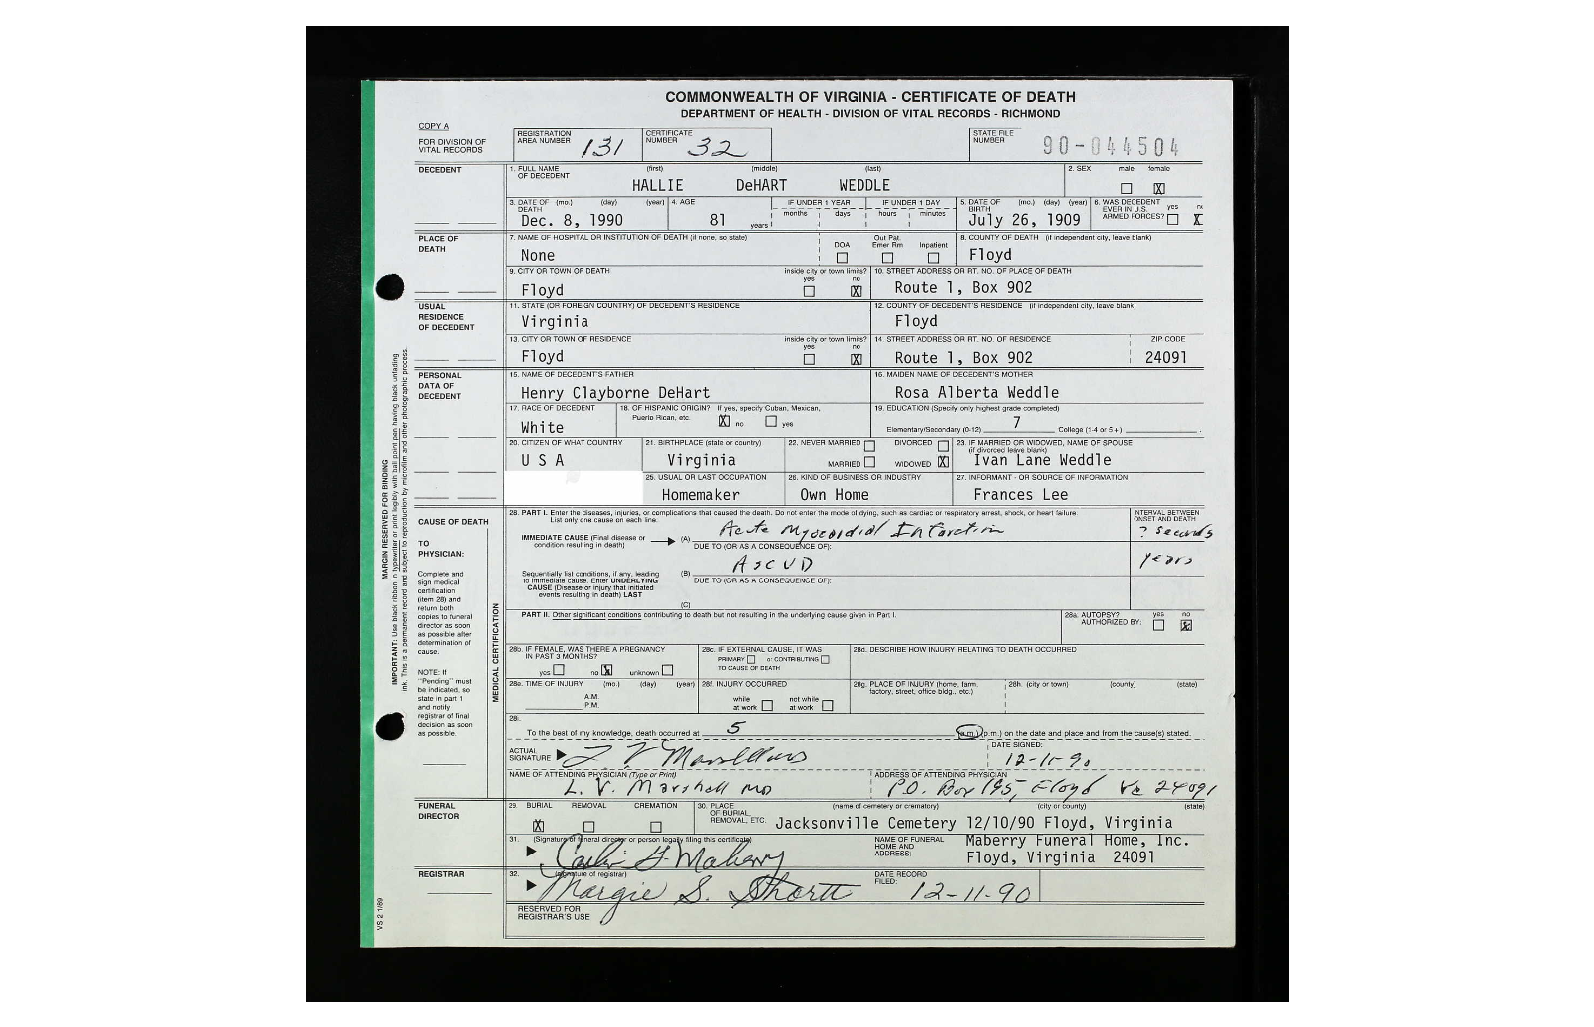 COMMONWEALTH OF VIRGINIA - CERTIFICATE OF DEATH
DEPARTMENT OF HEALTH - DIVISION OF VITAL RECORDS - RICHMOND
COPY A
FOR DIVISION OF VITAL RECORDS
REGISTRATION AREA NUMBER 131
CERTIFICATE NUMBER 32
STATE FILE NUMBER 90-044504
DECEDENT
1. FULL NAME OF DECEDENT (first) (middle) (last)
HALLIE DeHART WEDDLE
2. SEX male female X
3. DATE OF DEATH (mo.) (day) (year)
Dec. 8, 1990
4. AGE 81 years
IF UNDER 1 YEAR months days
IF UNDER 1 DAY hours minutes
5. DATE OF BIRTH (mo.) (day) (year)
July 26, 1909
6. WAS DECEDENT EVER IN U.S. ARMED FORCES? yes no X
PLACE OF DEATH
7. NAME OF HOSPITAL OR INSTITUTION OF DEATH (if none, so state)
None
DOA Out Pat. Emer Rm Inpatient
8. COUNTY OF DEATH (if independent city, leave blank)
Floyd
9. CITY OR TOWN OF DEATH
Floyd
inside city or town limits? yes no X
10. STREET ADDRESS OR RT. NO. OF PLACE OF DEATH
Route 1, Box 902
USUAL RESIDENCE OF DECEDENT
11. STATE (OR FOREIGN COUNTRY) OF DECEDENT'S RESIDENCE
Virginia
12. COUNTY OF DECEDENT'S RESIDENCE (if independent city, leave blank
Floyd
13. CITY OR TOWN OF RESIDENCE
Floyd
inside city or town limits? yes no X
14 STREET ADDRESS OR RT. NO. OF RESIDENCE
Route 1, Box 902
ZIP CODE
24091
PERSONAL DATA OF DECEDENT
15. NAME OF DECEDENT'S FATHER
Henry Clayborne DeHart
16. MAIDEN NAME OF DECEDENT'S MOTHER
Rosa Alberta Weddle
17. RACE OF DECEDENT
White
18. OF HISPANIC ORIGIN? If yes, specify Cuban, Mexican, Puerto Rican, etc. X no yes
19. EDUCATION (Specify only highest grade completed)
Elementary/Secondary (0-12) 7 College (1-4 or 5+)
20. CITIZEN OF WHAT COUNTRY
U S A
21. BIRTHPLACE (state or country)
Virginia
22. NEVER MARRIED DIVORCED
MARRIED WIDOWED X
23. IF MARRIED OR WIDOWED, NAME OF SPOUSE (if divorced leave blank)
Ivan Lane Weddle
25. USUAL OR LAST OCCUPATION
Homemaker
26. KIND OF BUSINESS OR INDUSTRY
Own Home
27. INFORMANT - OR SOURCE OF INFORMATION
Frances Lee
CAUSE OF DEATH
TO PHYSICIAN:
Complete and sign medical certification (item 28) and return both copies to funeral director as soon as possible after determination of cause.
NOTE: If "Pending" must be indicated, so state in part 1 and notify registrar of final decision as soon as possible.
MEDICAL CERTIFICATION
28. PART I. Enter the diseases, injuries, or complications that caused the death. Do not enter the mode of dying, such as cardiac or respiratory arrest, shock, or heart failure.
List only one cause on each line.
INTERVAL BETWEEN ONSET AND DEATH
IMMEDIATE CAUSE (Final disease or condition resulting in death) (A) Acute Myocardial Infarction
? seconds
DUE TO (OR AS A CONSEQUENCE OF):
Sequentially list conditions, if any, leading to immediate cause. Enter UNDERLYING CAUSE (Disease or injury that initiated events resulting in death) LAST
(B) ASCVD
years
DUE TO (OR AS A CONSEQUENCE OF):
(C)
PART II. Other significant conditions contributing to death but not resulting in the underlying cause given in Part I.
28a. AUTOPSY? AUTHORIZED BY: yes no X
28b. IF FEMALE, WAS THERE A PREGNANCY IN PAST 3 MONTHS? yes no X unknown
28c. IF EXTERNAL CAUSE, IT WAS PRIMARY or CONTRIBUTING TO CAUSE OF DEATH
28d. DESCRIBE HOW INJURY RELATING TO DEATH OCCURRED
28e. TIME OF INJURY (mo.) (day) (year)
A.M.
P.M.
28f. INJURY OCCURRED while at work not while at work
28g. PLACE OF INJURY (home, farm, factory, street, office bldg., etc.)
28h. (city or town) (county (state)
28i.
To the best of my knowledge, death occurred at 5 (a.m.) (p.m.) on the date and place and from the cause(s) stated.
ACTUAL SIGNATURE
DATE SIGNED:
NAME OF ATTENDING PHYSICIAN (Type or Print)
L. V. Marshall MD
ADDRESS OF ATTENDING PHYSICIAN
P.O. Box 195, Floyd Va 24091
FUNERAL DIRECTOR
29. BURIAL X REMOVAL CREMATION
30. PLACE OF BURIAL, REMOVAL, ETC. (name of cemetery or crematory) (city or county) (state)
Jacksonville Cemetery 12/10/90 Floyd, Virginia
31. (Signature of funeral director or person legally filing this certificate)
NAME OF FUNERAL HOME AND ADDRESS:
Maberry Funeral Home, Inc.
Floyd, Virginia 24091
REGISTRAR
32. (signature of registrar)
Margie S. Shortt
DATE RECORD FILED: 12-11-90
RESERVED FOR REGISTRAR'S USE
MARGIN RESERVED FOR BINDING
IMPORTANT: Use black ribbon n typewriter or print legibly with ball point pen having black unfading
ink. This is a permanent record and subject to reproduction by microfilm and other photographic process.
VS 2 1/89